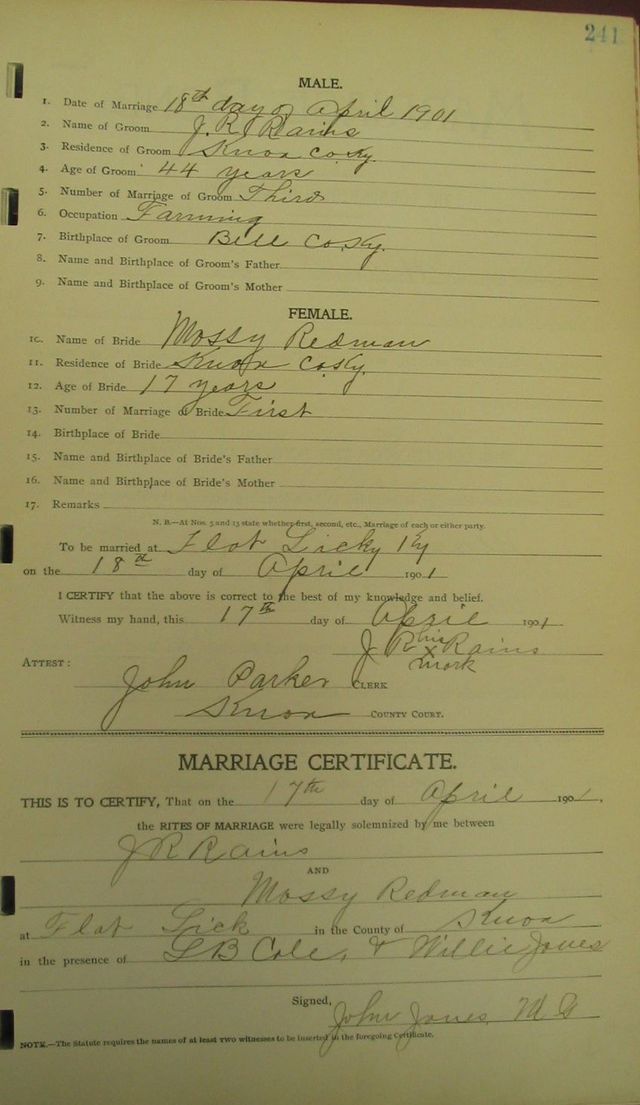 241
MALE.
1. Date of Marriage 18th day of April 1901
2. Name of Groom J. R. Rains
3. Residence of Groom Knox Co Ky.
4. Age of Groom 44 years
5. Number of Marriage of Groom Third
6. Occupation Farming
7. Birthplace of Groom Bell Co. Ky.
8. Name and Birthplace of Groom's Father
9. Name and Birthplace of Groom's Mother
FEMALE.
10. Name of Bride Mossy Redman
11. Residence of Bride Knox Co Ky.
12. Age of Bride 17 years
13. Number of Marriage of Bride First
14. Birthplace of Bride
15. Name and Birthplace of Bride's Father
16. Name and Birthplace of Bride's Mother
17. Remarks
N. B.—At Nos. 5 and 13 state whether first, second, etc., Marriage of each or either party.
To be married at Flat Lick Ky
on the 18th day of April 1901
I CERTIFY that the above is correct to the best of my knowledge and belief.
Witness my hand, this 17th day of April 1901
J R his x mark Rains
ATTEST:
John Parker CLERK
Knox COUNTY COURT.
MARRIAGE CERTIFICATE.
THIS IS TO CERTIFY, That on the 17th day of April 1901,
the RITES OF MARRIAGE were legally solemnized by me between
J R Rains
AND
Mossy Redman
at Flat Lick in the County of Knox
in the presence of L B Cole, & Willie Jones
Signed,
John Jones, M G
NOTE.—The Statute requires the names of at least two witnesses to be inserted in the foregoing Certificate.